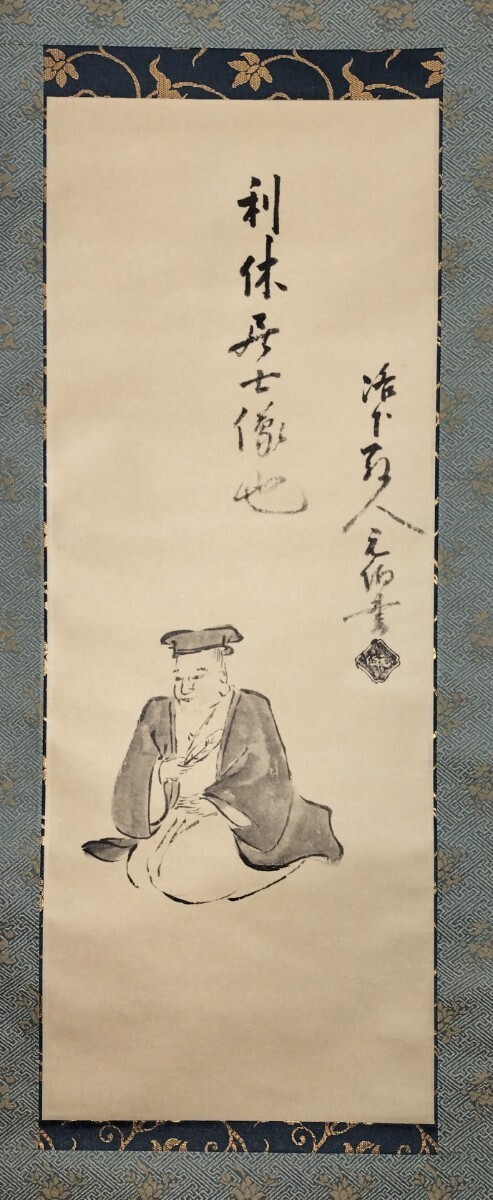 利休居士像也
洛下於人元伯書